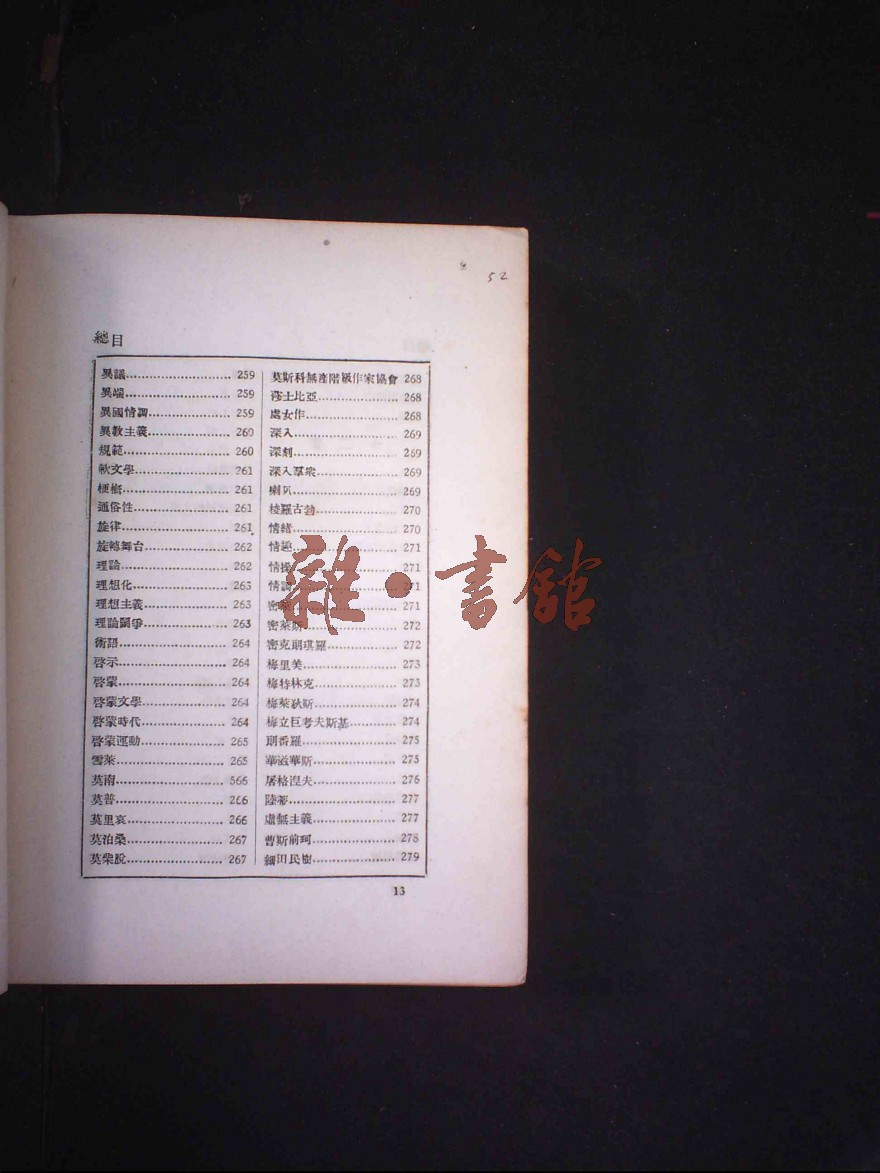 52
總目
異議 259
異端 259
異國情調 259
異教主義 260
規範 260
軟文學 261
梗概 261
通俗性 261
旋律 261
旋轉舞台 262
理論 262
理想化 263
理想主義 263
理論鬭爭 263
術語 264
啓示 264
啓蒙 264
啓蒙文學 264
啓蒙時代 264
啓蒙運動 265
雪萊 265
莫南 566
莫普 266
莫里哀 266
莫泊桑 267
莫柴說 267
莫斯科無產階級作家協會 268
莎士比亞 268
處女作 268
深入 269
深刻 269
深入羣衆 269
喇叭 269
梭羅古勃 270
情緒 270
情趣 271
情操 271
情調 271
271
密萊斯 272
密克朗琪羅 272
梅里美 273
梅特林克 273
梅萊狄斯 274
梅立巨考夫斯基 274
朗番羅 275
華滋華斯 275
屠格涅夫 276
陸蒂 277
虛無主義 277
曹斯前珂 278
細田民樹 279
13
雜·書館